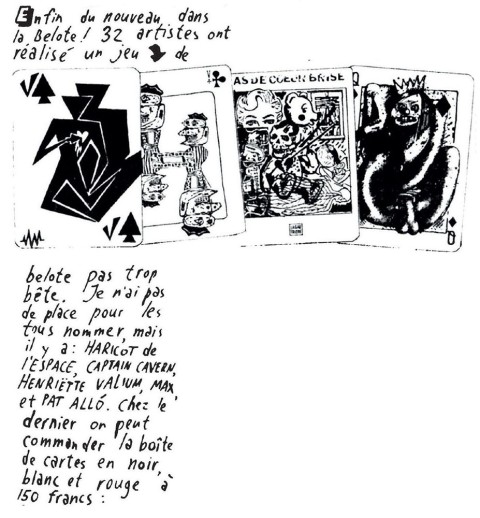 Enfin du nouveau dans
la Belote! 32 artistes ont
réalisé un jeu de
V
V
V
AS DE COEUR BRISÉ
Q
belote pas trop
bête. Je n'ai pas
de place pour les
tous nommer, mais
il y a : HARICOT de
l'ESPACE, CAPTAIN CAVERN,
HENRIETTE VALIUM, MAX
et PAT ALLÓ. Chez le
dernier on peut
commander la boîte
de cartes en noir,
blanc et rouge à
150 francs :